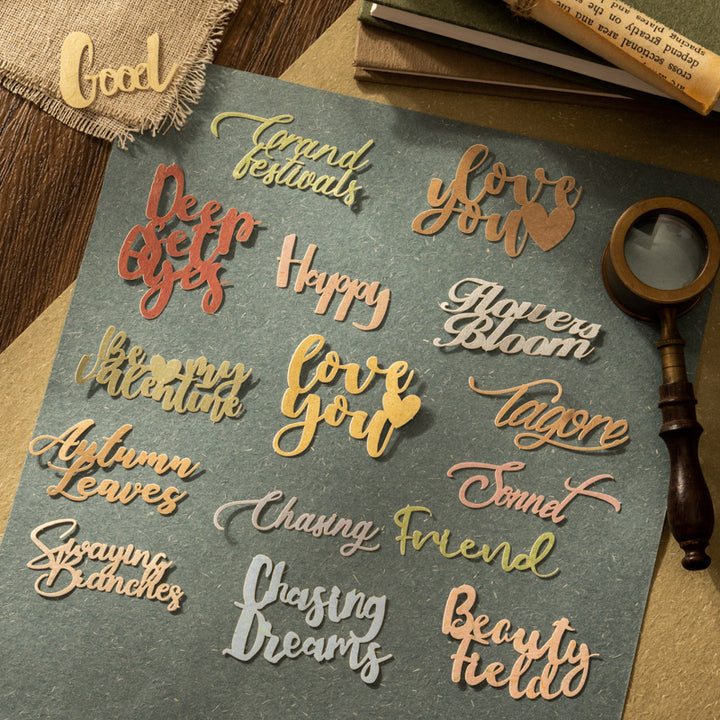 Good
Grand
festivals
love
you
Deep
Set
Eyes
Happy
Flowers
Bloom
Be my
Valentine
love
you
Tagore
Autumn
Leaves
Sonnet
Chasing
Friend
Swaying
Branches
Chasing
Dreams
Beauty
field
cross sectional area and
depend greatly on the
spacing Plates are